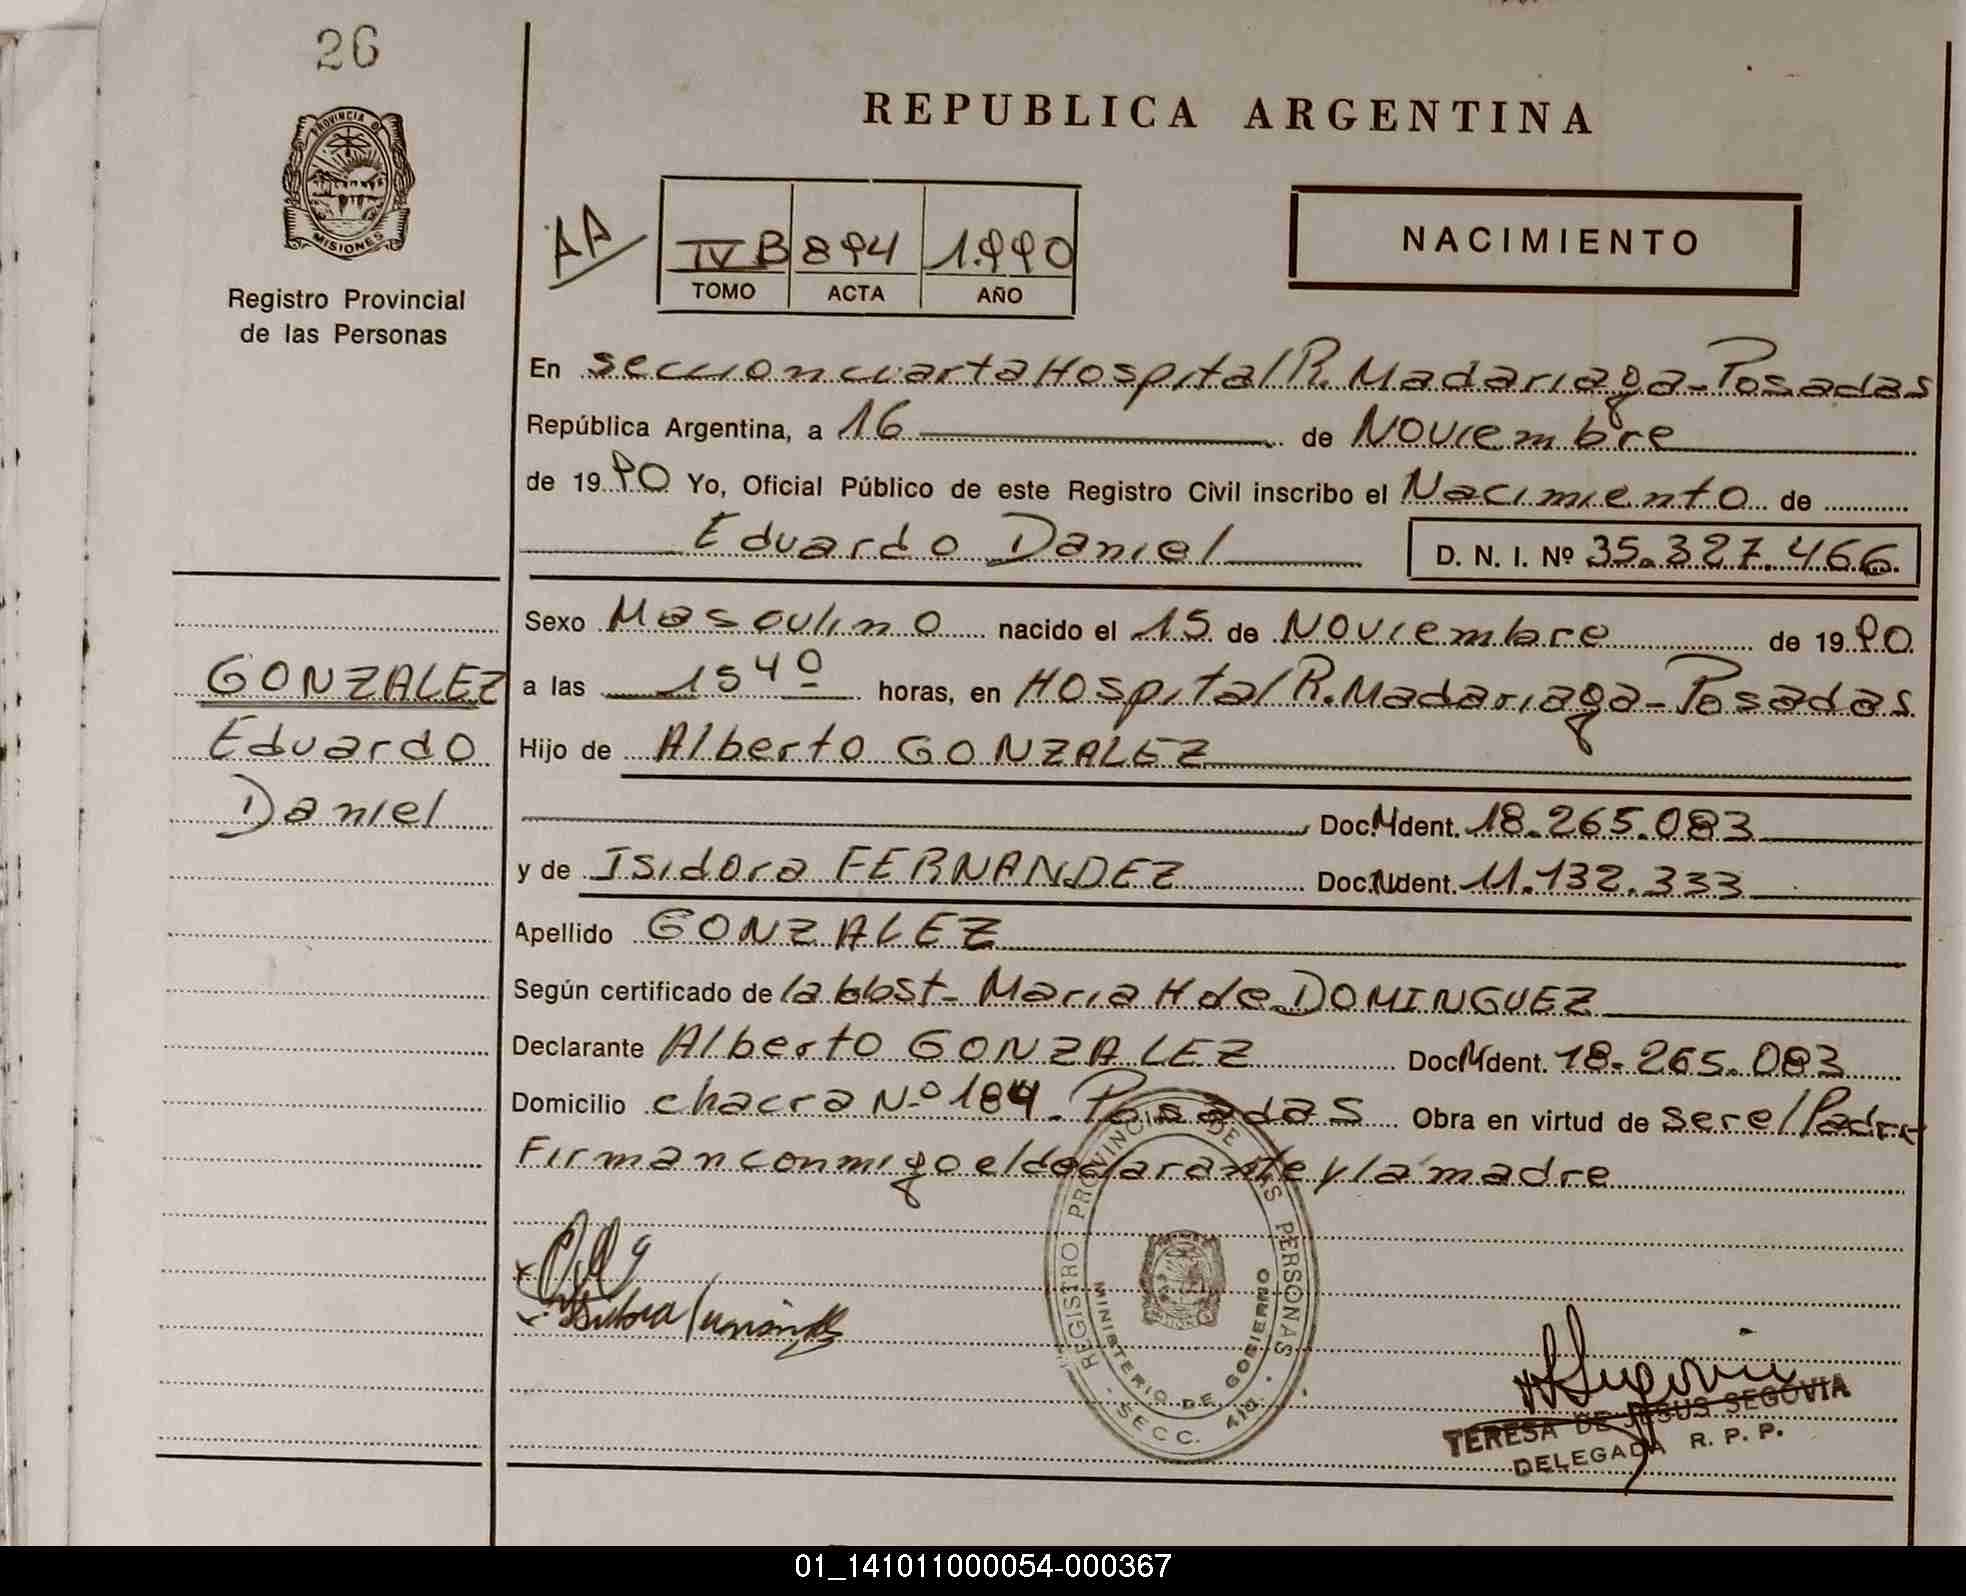 26
PROVINCIA DE
MISIONES
Registro Provincial
de las Personas
REPUBLICA ARGENTINA
AA
IV B 894 1.990
TOMO ACTA AÑO
NACIMIENTO
En seccion cuarta Hospital R. Madariaga - Posadas
República Argentina, a 16 de Noviembre
de 1990 Yo, Oficial Público de este Registro Civil inscribo el Nacimiento de
Eduardo Daniel D. N. I. Nº 35.327.466
Sexo Masculino nacido el 15 de Noviembre de 1990
a las 15 40 horas, en Hospital R. Madariaga - Posadas
Hijo de Alberto GONZALEZ
Doc. N Ident. 18.265.083
y de Isidora FERNANDEZ Doc. N Ident. 11.132.333
Apellido GONZALEZ
Según certificado de la Obst - Maria H de DOMINGUEZ
Declarante Alberto GONZALEZ Doc N Ident. 18.265.083
Domicilio chacra Nº 184 - Posadas Obra en virtud de ser el Padre
Firman conmigo el declarante y la madre
GONZALEZ
Eduardo
Daniel
Isidora
REGISTRO PROVINCIAL DE LAS PERSONAS
MINISTERIO DE GOBIERNO
SECC. 4ta.
Segovia
TERESA DE JESUS SEGOVIA
DELEGADA R. P. P.
01_141011000054-000367